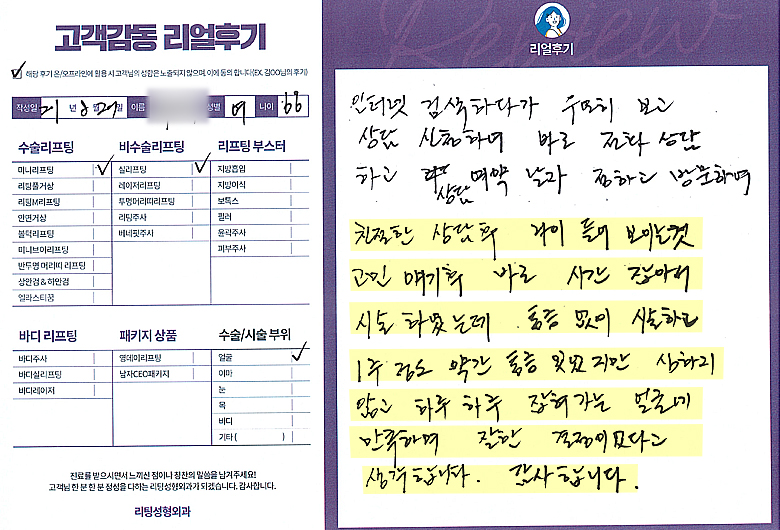 고객감동 리얼후기
해당 후기 온/오프라인에 활용 시 고객님의 성함은 노출되지 않으며, 이에 동의 합니다(EX. 김OO님의 후기)
작성일 21 년 8 월 27 일 이름 성별 여 나이 66
수술리프팅
미니리프팅
리팅풀거상
리팅M리프팅
안면거상
볼턱리프팅
미니브이리프팅
반투명 머리띠 리프팅
상안검 & 하안검
엘라스티꿈
비수술리프팅
실리프팅
레이저리프팅
투명머리띠리프팅
리팅주사
베네핏주사
리프팅 부스터
지방흡입
지방이식
보톡스
필러
윤곽주사
피부주사
바디 리프팅
바디주사
바디실리프팅
바디레이저
패키지 상품
영데이리프팅
남자CEO패키지
수술/시술 부위
얼굴
이마
눈
목
바디
기타 ( )
진료를 받으시면서 느끼신 점이나 칭찬의 말씀을 남겨주세요!
고객님 한 분 한 분 정성을 다하는 리팅성형외과가 되겠습니다. 감사합니다.
리팅성형외과
Review
리얼후기
인터넷 검색하다가 우연히 보고
상담 신청하여 바로 전화 상담
하고 상담 예약 날짜 정하고 방문하여
친절한 상담후 나이 들어 보이는것
고민 얘기후 바로 시간 잡아서
시술 하였는데 통증 없이 시술하고
1주 정도 약간 통증 있었지만 심하지
않고 하루 하루 잡혀가는 얼굴에
만족하며 잘한 결정이었다고
생각합니다. 감사합니다.